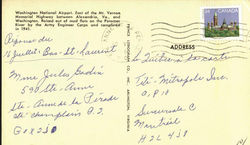 Washington National Airport. East of the Mt. Vernon
Memorial Highway between Alexandria, Va., and
Washington. Raised out of mud flats on the Potomac
River by the Army Engineer Corps and completed
in 1941.
CANADA
ADDRESS
Réponse du
16 juillet: Bau-St-Laurent
Mme Jules Godin
590 Ste-Anne
Ste-Anne de la Pérade
cté Champlain P.Q.
G0X 2J0
Télé-Métropole Inc.
C.P. 10
Succursale C
Montréal
H2L 4J8